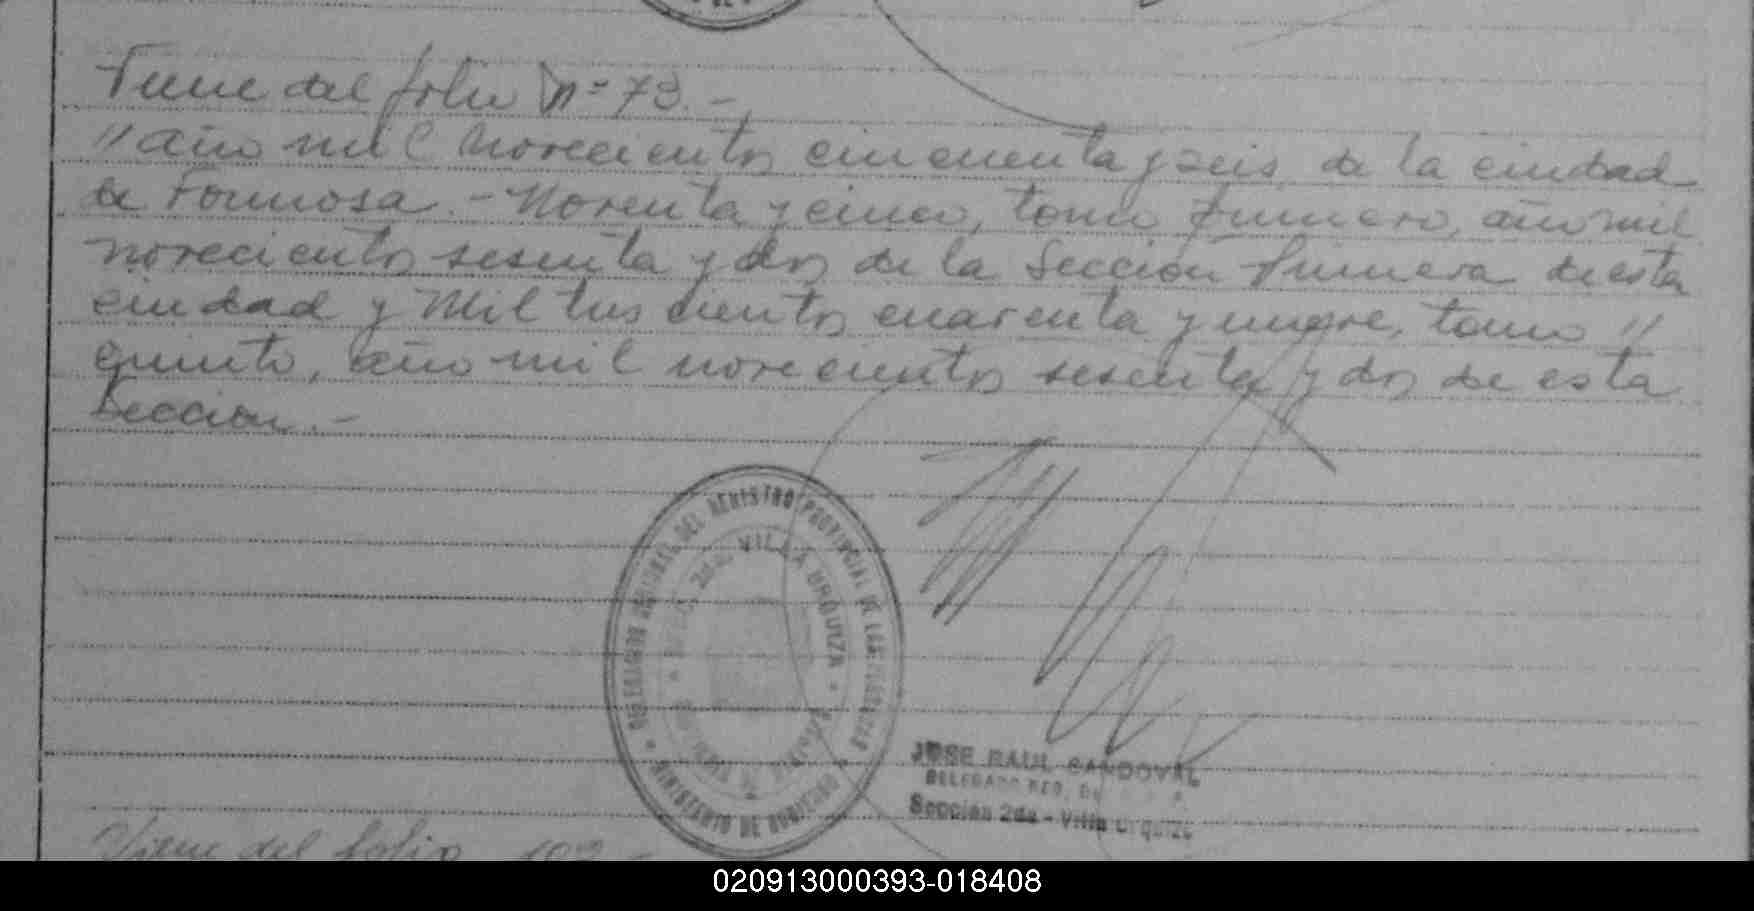 Viene del folio Nº 73.-
"año mil novecientos cincuenta y seis, de la ciudad
de Formosa.- Noventa y cinco, tomo primero, año mil
novecientos sesenta y dos de la Sección Primera de esta
ciudad y Mil trescientos cuarenta y nueve, tomo "
quinto, año mil novecientos sesenta y dos de esta
Sección.-
DEL REGISTRO PROVINCIAL DE LAS PERSONAS
2da. VILLA URQUIZA
MINISTERIO DE GOBIERNO
JOSE RAUL SANDOVAL
DELEGADO REG.
Sección 2da - Villa Urquiza
Viene del folio 102 -
020913000393-018408